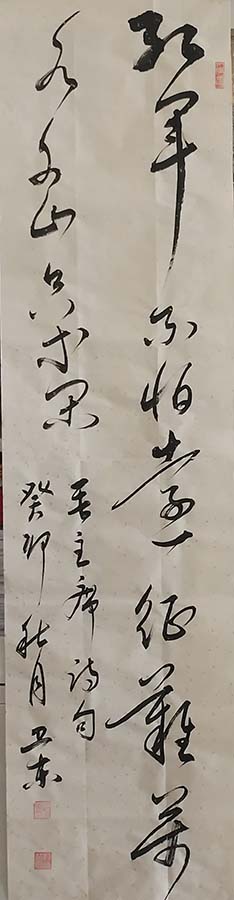 红军不怕遠征難萬
水千山只等闲
毛主席诗句
癸卯秋月 卫东